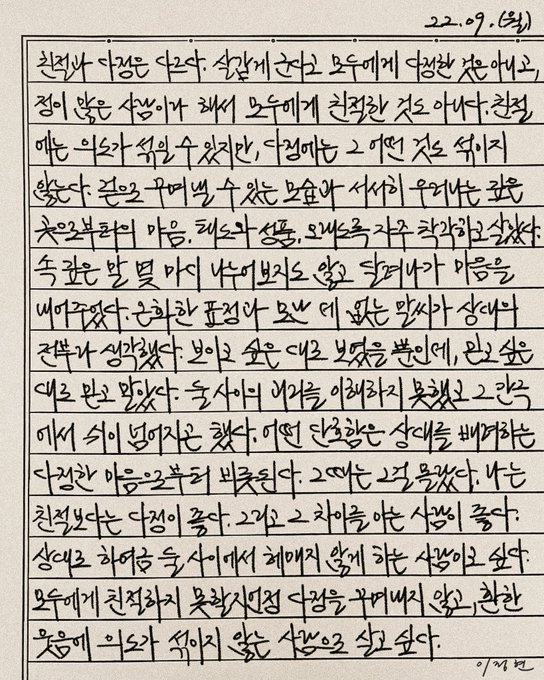 22.09.(월)
친절과 다정은 다르다. 살갑게 군다고 모두에게 다정한 것은 아니고,
정이 많은 사람이라 해서 모두에게 친절한 것도 아니다. 친절
에는 의도가 섞일 수 있지만, 다정에는 그 어떤 것도 섞이지
않는다. 겉으로 꾸며 낼 수 있는 모습과 서서히 우러나는 깊은
곳으로부터의 마음. 태도와 성품. 오래도록 자주 착각하고 살았다.
속 깊은 말 몇 마디 나누어보지도 않고 달려나가 마음을
내어주었다. 온화한 표정과 모난 데 없는 말씨가 상대의
전부라 생각했다. 보이고 싶은 대로 보였을 뿐인데, 믿고 싶은
대로 믿고 말았다. 둘 사이의 괴리를 이해하지 못했고 그 간극
에서 쉬이 넘어지곤 했다. 어떤 단호함은 상대를 배려하는
다정한 마음으로부터 비롯된다. 그때는 그걸 몰랐다. 나는
친절보다는 다정이 좋다. 그리고 그 차이를 아는 사람이 좋다.
상대로 하여금 둘 사이에서 헤매지 않게 하는 사람이고 싶다.
모두에게 친절하지 못할지언정 다정을 꾸며내지 않고, 환한
웃음에 의도가 섞이지 않는 사람으로 살고 싶다.
이정현